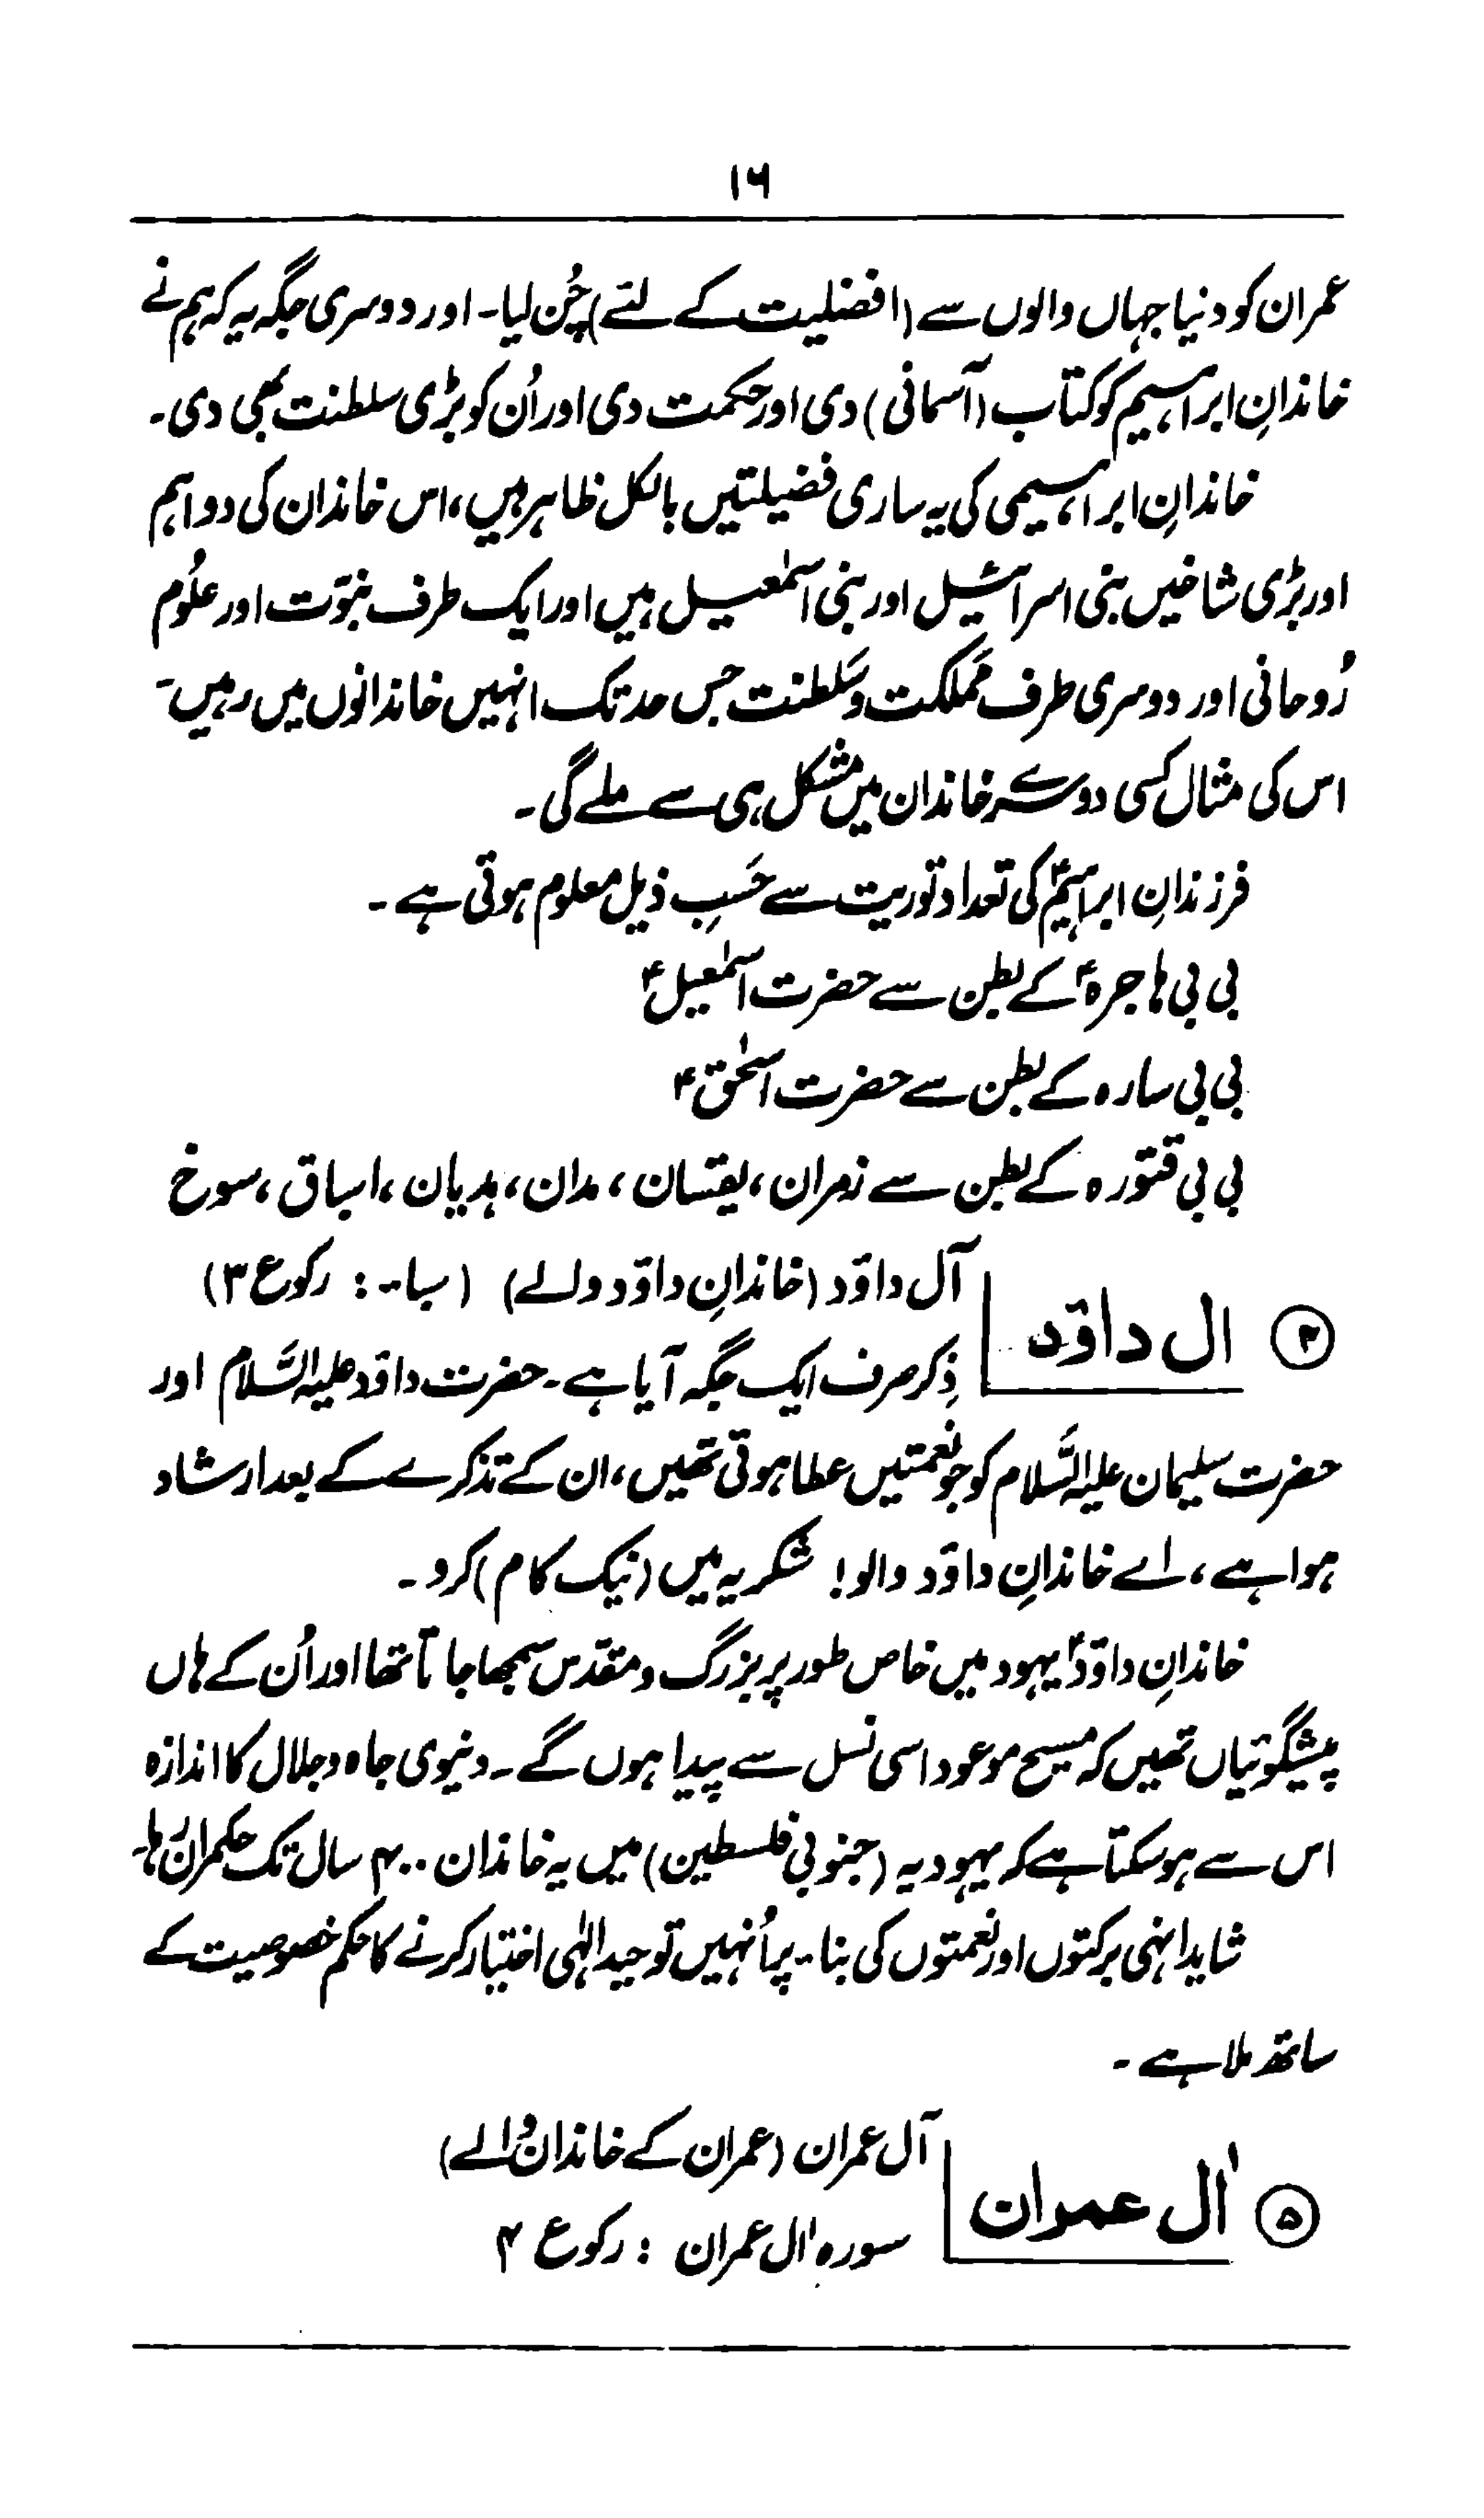 ۱۶
عمران کو دنیا جہاں والوں سے (افضلیت کے لئے) چُن لیا۔ اور دوسری جگہ یہ کہ ہم نے
خاندانِ ابراہیم کو کتاب (آسمانی) دی اور حکمت دی اور اُن کو بڑی سلطنت بھی دی۔
خاندانِ ابراہیمی کی یہ ساری فضیلتیں بالکل ظاہر ہیں، اس خاندان کی دو اہم
اور بڑی شاخیں بنی اسرائیل اور بنی اسمٰعیل ہیں اور ایک طرف نبوّت اور علُوم
رُوحانی اور دوسری طرف مَملکت و سَلطنت جس حد تک انہیں خاندانوں میں رہیں۔
اس کی مثال کسی دوسرے خاندان میں مشکل ہی سے ملے گی۔
فرزندانِ ابراہیمؑ کی تعداد توریت سے حَسبِ ذیل معلوم ہوتی ہے۔
بی بی ہاجرہؑ کے بطن سے حضرت اسمٰعیلؑ
بی بی سارہ کے بطن سے حضرت اسحٰقؑ
بی بی قتورہ کے بطن سے زمران، یقتسان، مدان، مدیان، اسباق، سورخ
۴ اٰل داوٗد
آل داوٗد (خاندانِ داوٗد والے) (سبا۔: رکوع ۳)
ذِکر صرف ایک جگہ آیا ہے۔ حضرت داوٗد علیہ السَّلام اور
حضرت سلیمان علیہ السَّلام کو جو نعمتیں عطا ہوئی تھیں، ان کے تذکرے کے بعد ارشاد
ہوا ہے، اے خاندانِ داوٗد والو! شکریہ میں (نیک کام) کرو۔
خاندانِ داوٗدؑ یہود میں خاص طور پر بزرگ و مقدس سمجھا جاتا تھا اور اُن کے ہاں
پیشگوئیاں تھیں کہ مسیح موعود اسی نسل سے پیدا ہوں گے۔ دنیوی جاہ و جلال کا اندازہ
اس سے ہو سکتا ہے کہ یہودیہ (جنوبی فلسطین) میں یہ خاندان ۴۰۰ سال تک حکمراں رہا۔
شاید انہی برکتوں اور نعمتوں کی بناء پر اُنہیں توحید الٰہی اختیار کرنے کا حکم خصوصیت کے
ساتھ ملا ہے۔
۵ اٰل عمران
آل عمران (عمران کے خاندان والے)
سورہ اٰل عمران : رکوع ۴